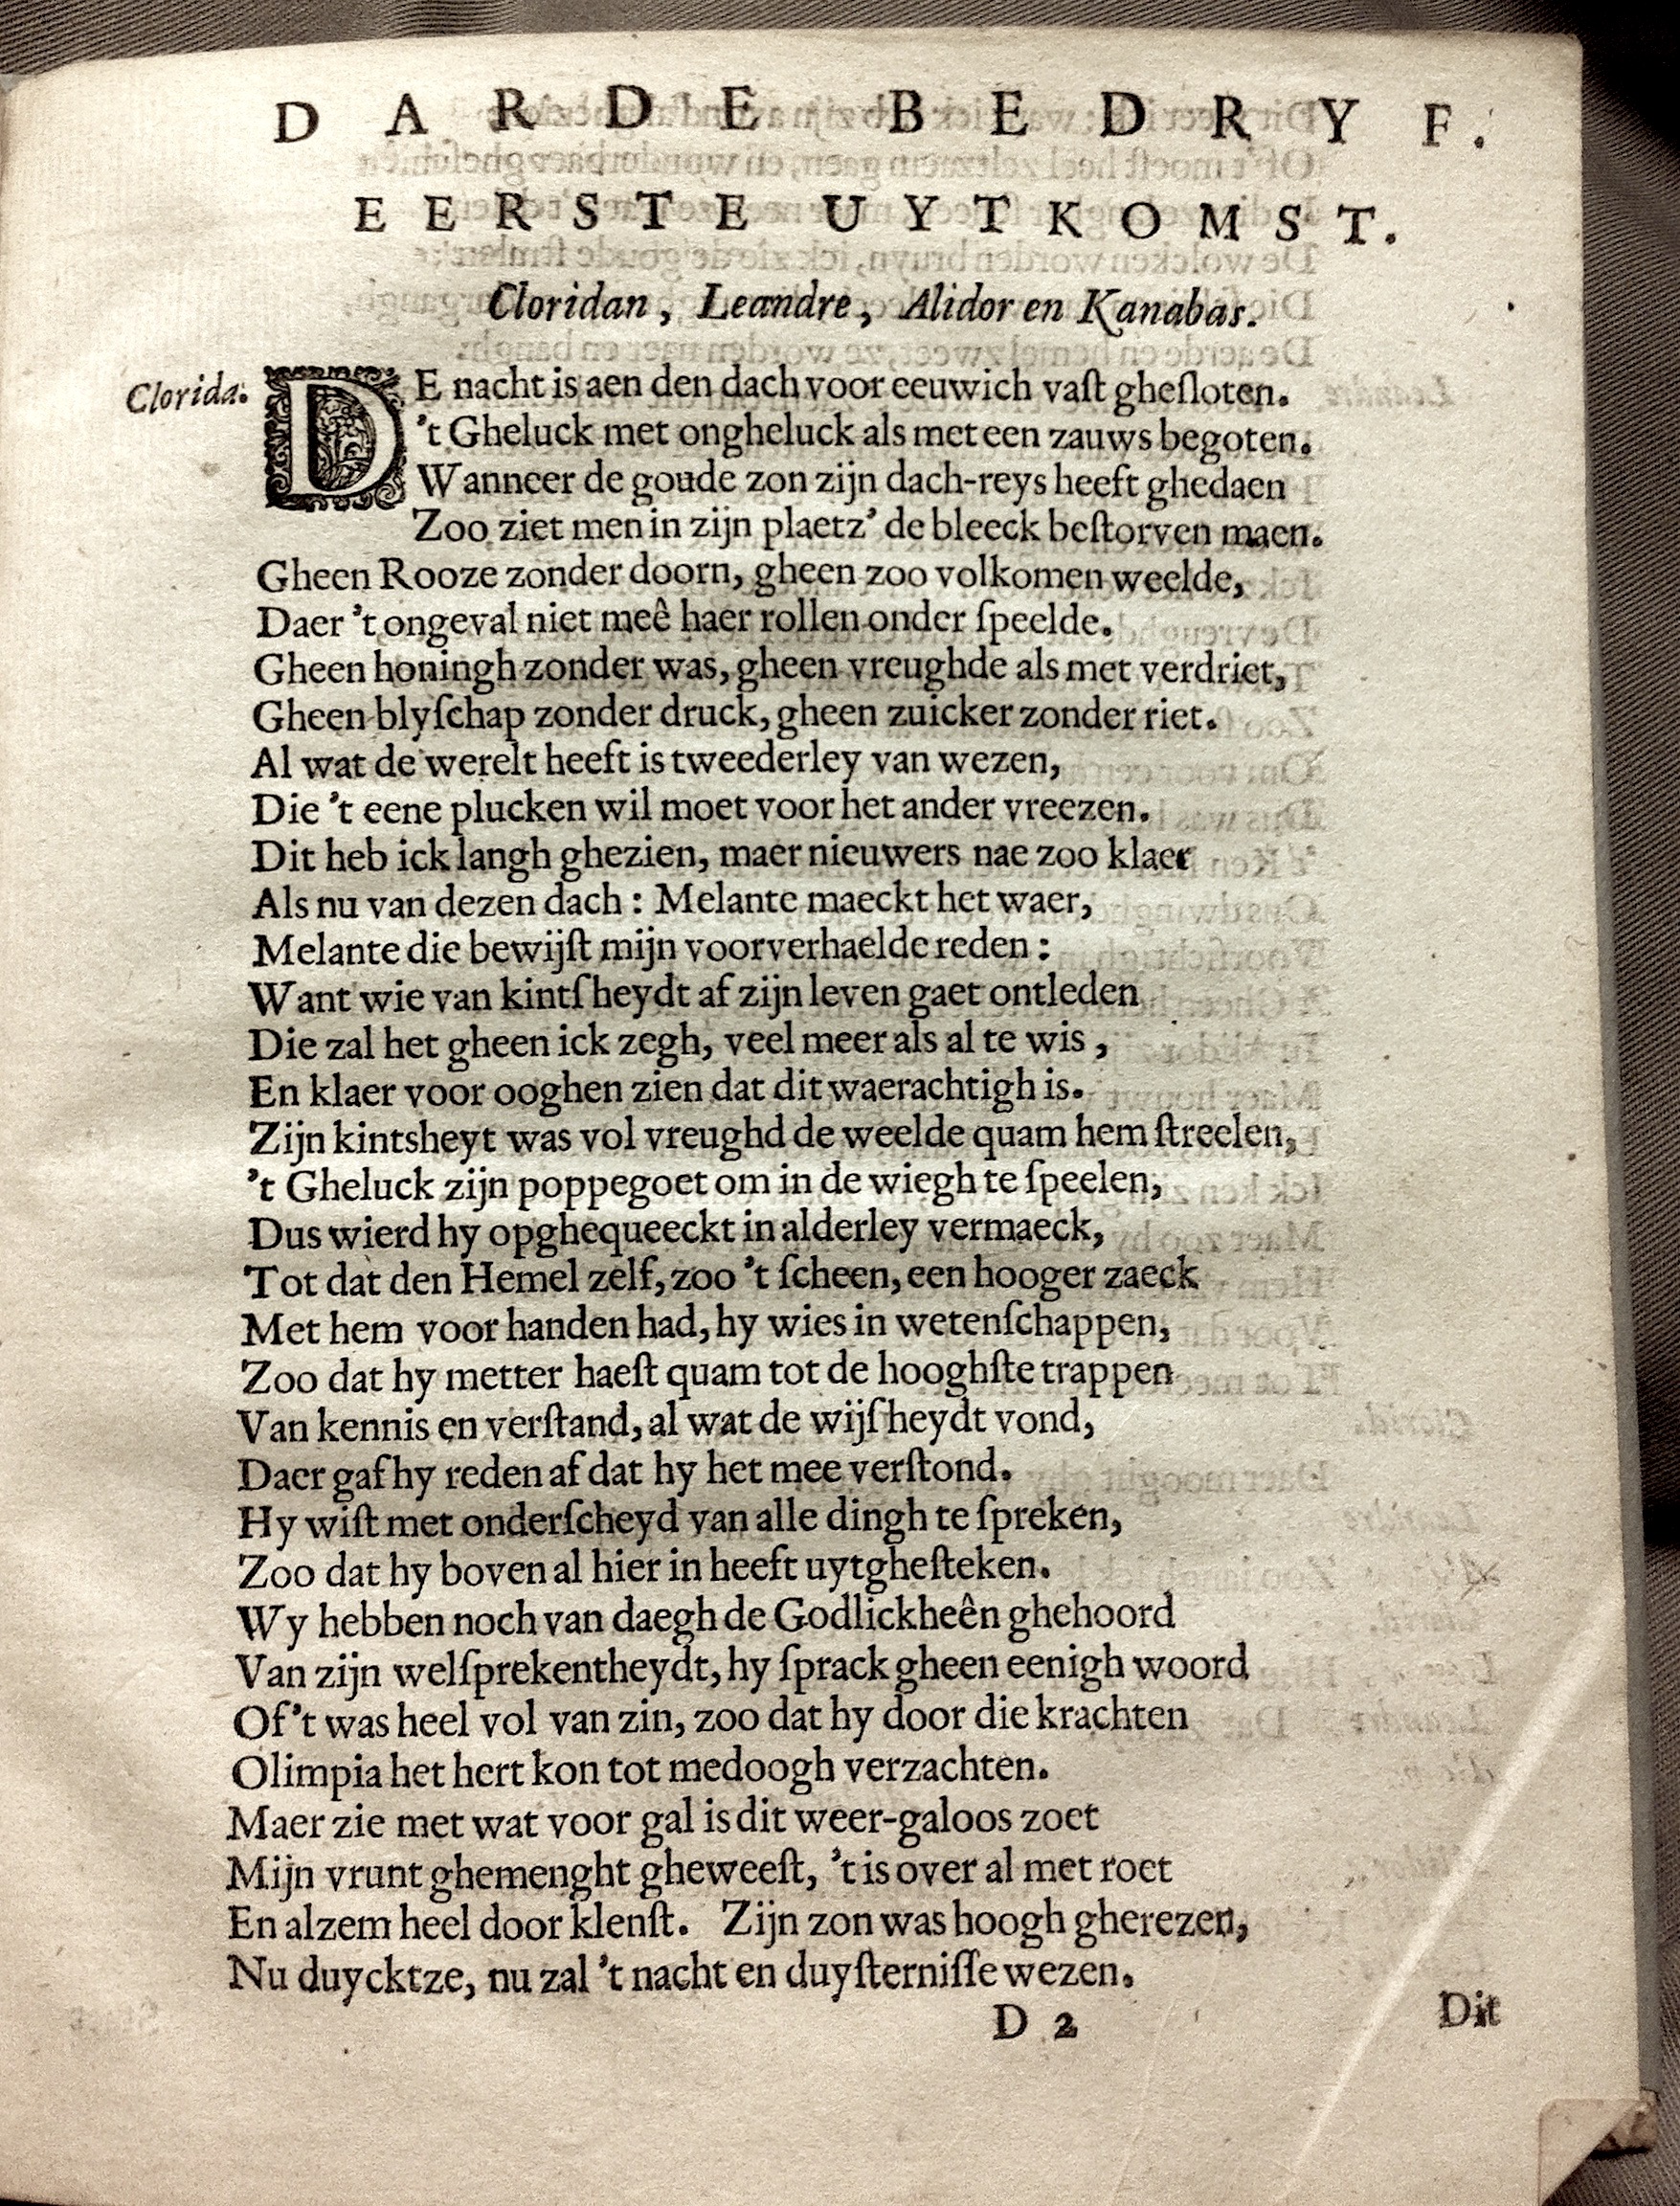 DARDE BEDRYF.
EERSTE UYTKOMST.
Cloridan, Leandre, Alidor en Kanabas.
Clorida. DE nacht is aen den dach voor eeuwich vaſt gheſloten.
't Gheluck met ongheluck als met een zauws begoten.
Wanneer de goude zon zijn dach-reys heeft ghedaen
Zoo ziet men in zijn plaetz' de bleeck beſtorven maen.
Gheen Rooze zonder doorn, gheen zoo volkomen weelde,
Daer 't ongeval niet meê haer rollen onder ſpeelde.
Gheen honingh zonder was, gheen vreughde als met verdriet,
Gheen blyſchap zonder druck, gheen zuicker zonder riet.
Al wat de werelt heeft is tweederley van wezen,
Die 't eene plucken wil moet voor het ander vreezen.
Dit heb ick langh ghezien, maer nieuwers nae zoo klaer
Als nu van dezen dach: Melante maeckt het waer,
Melante die bewijſt mijn voorverhaelde reden:
Want wie van kintſheydt af zijn leven gaet ontleden
Die zal het gheen ick zegh, veel meer als al te wis,
En klaer voor ooghen zien dat dit waerachtigh is.
Zijn kintsheyt was vol vreughd de weelde quam hem ſtreelen,
't Gheluck zijn poppegoet om in de wiegh te ſpeelen,
Dus wierd hy opghequeeckt in alderley vermaeck,
Tot dat den Hemel zelf, zoo 't ſcheen, een hooger zaeck
Met hem voor handen had, hy wies in wetenſchappen,
Zoo dat hy metter haeſt quam tot de hooghſte trappen
Van kennis en verſtand, al wat de wijſheydt vond,
Daer gaf hy reden af dat hy het mee verſtond.
Hy wiſt met onderſcheyd van alle dingh te ſpreken,
Zoo dat hy boven al hier in heeft uytgheſteken.
Wy hebben noch van daegh de Godlickheên ghehoord
Van zijn welſprekentheydt, hy ſprack gheen eenigh woord
Of 't was heel vol van zin, zoo dat hy door die krachten
Olimpia het hert kon tot medoogh verzachten.
Maer zie met wat voor gal is dit weer-galoos zoet
Mijn vrunt ghemenght gheweeſt, 't is over al met roet
En alzem heel door klenſt. Zijn zon was hoogh gherezen,
Nu duycktze, nu zal 't nacht en duyſterniſſe wezen.
D 2 Dit